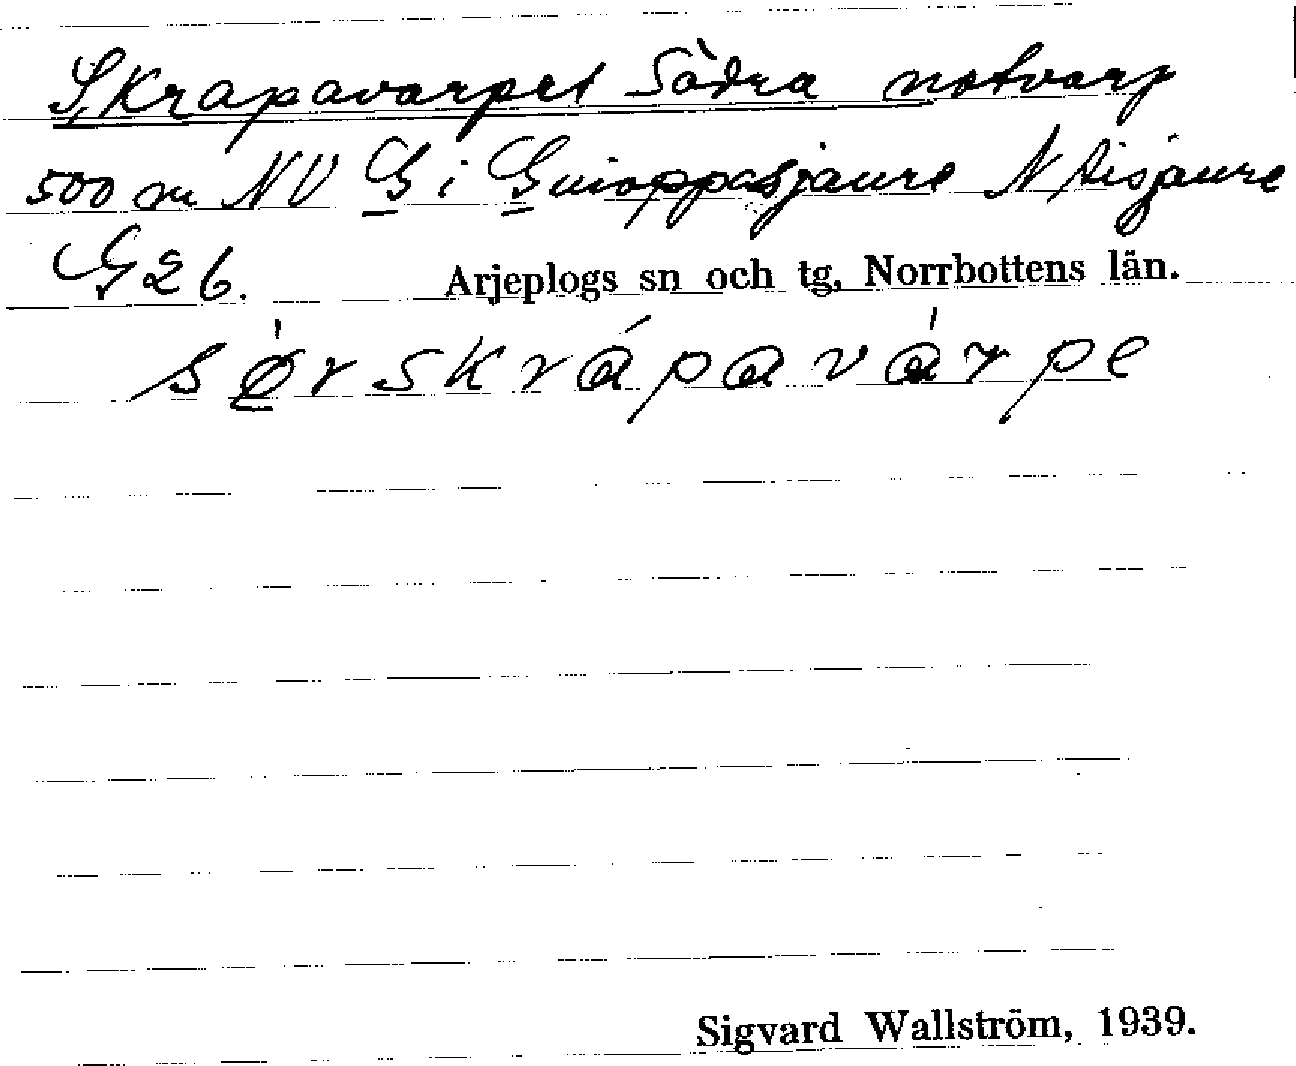 Skrapavarpet Södra notvarp
500 m NV G i Guioppasjaure N Aisjaure
G26. Arjeplogs sn och tg, Norrbottens län.
sørskrápavárpe
Sigvard Wallström, 1939.